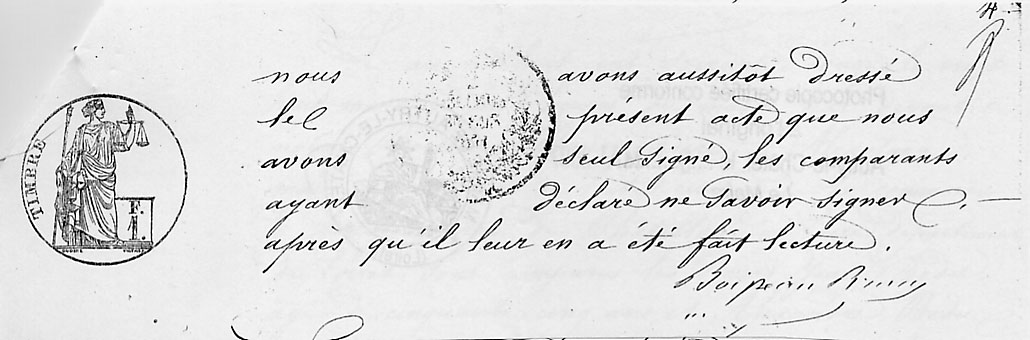 nous avons aussitôt dressé
le présent acte que nous
avons seul signé, les comparants
ayant déclaré ne savoir signer
après qu'il leur en a été fait lecture.
TIMBRE
F.
1.